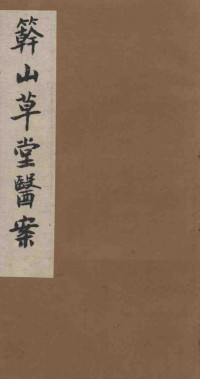 簳山草堂醫案